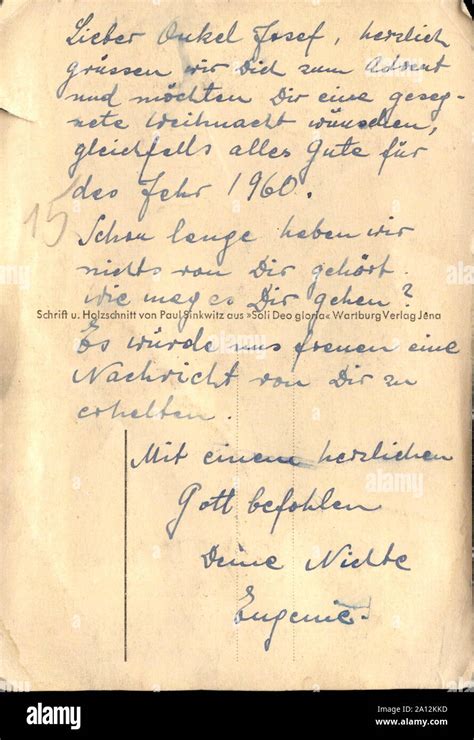 Lieber Onkel Josef, herzlich
grüssen wir Dich zum Advent
und möchten Dir eine geseg-
nete Weihnacht wünschen,
gleichfalls alles Gute für
das Jahr 1960.
15
Schon lange haben wir
nichts von Dir gehört.
Wie mag es Dir gehen?
Schrift u. Holzschnitt von Paul Sinkwitz aus »Soli Deo gloria« Wartburg Verlag Jena
Es würde uns freuen eine
Nachricht von Dir zu
erhalten.
Mit einem herzlichen
Gott befohlen
Deine Nichte
Eugenie.
alamy
Image ID: 2A12KKD
www.alamy.com